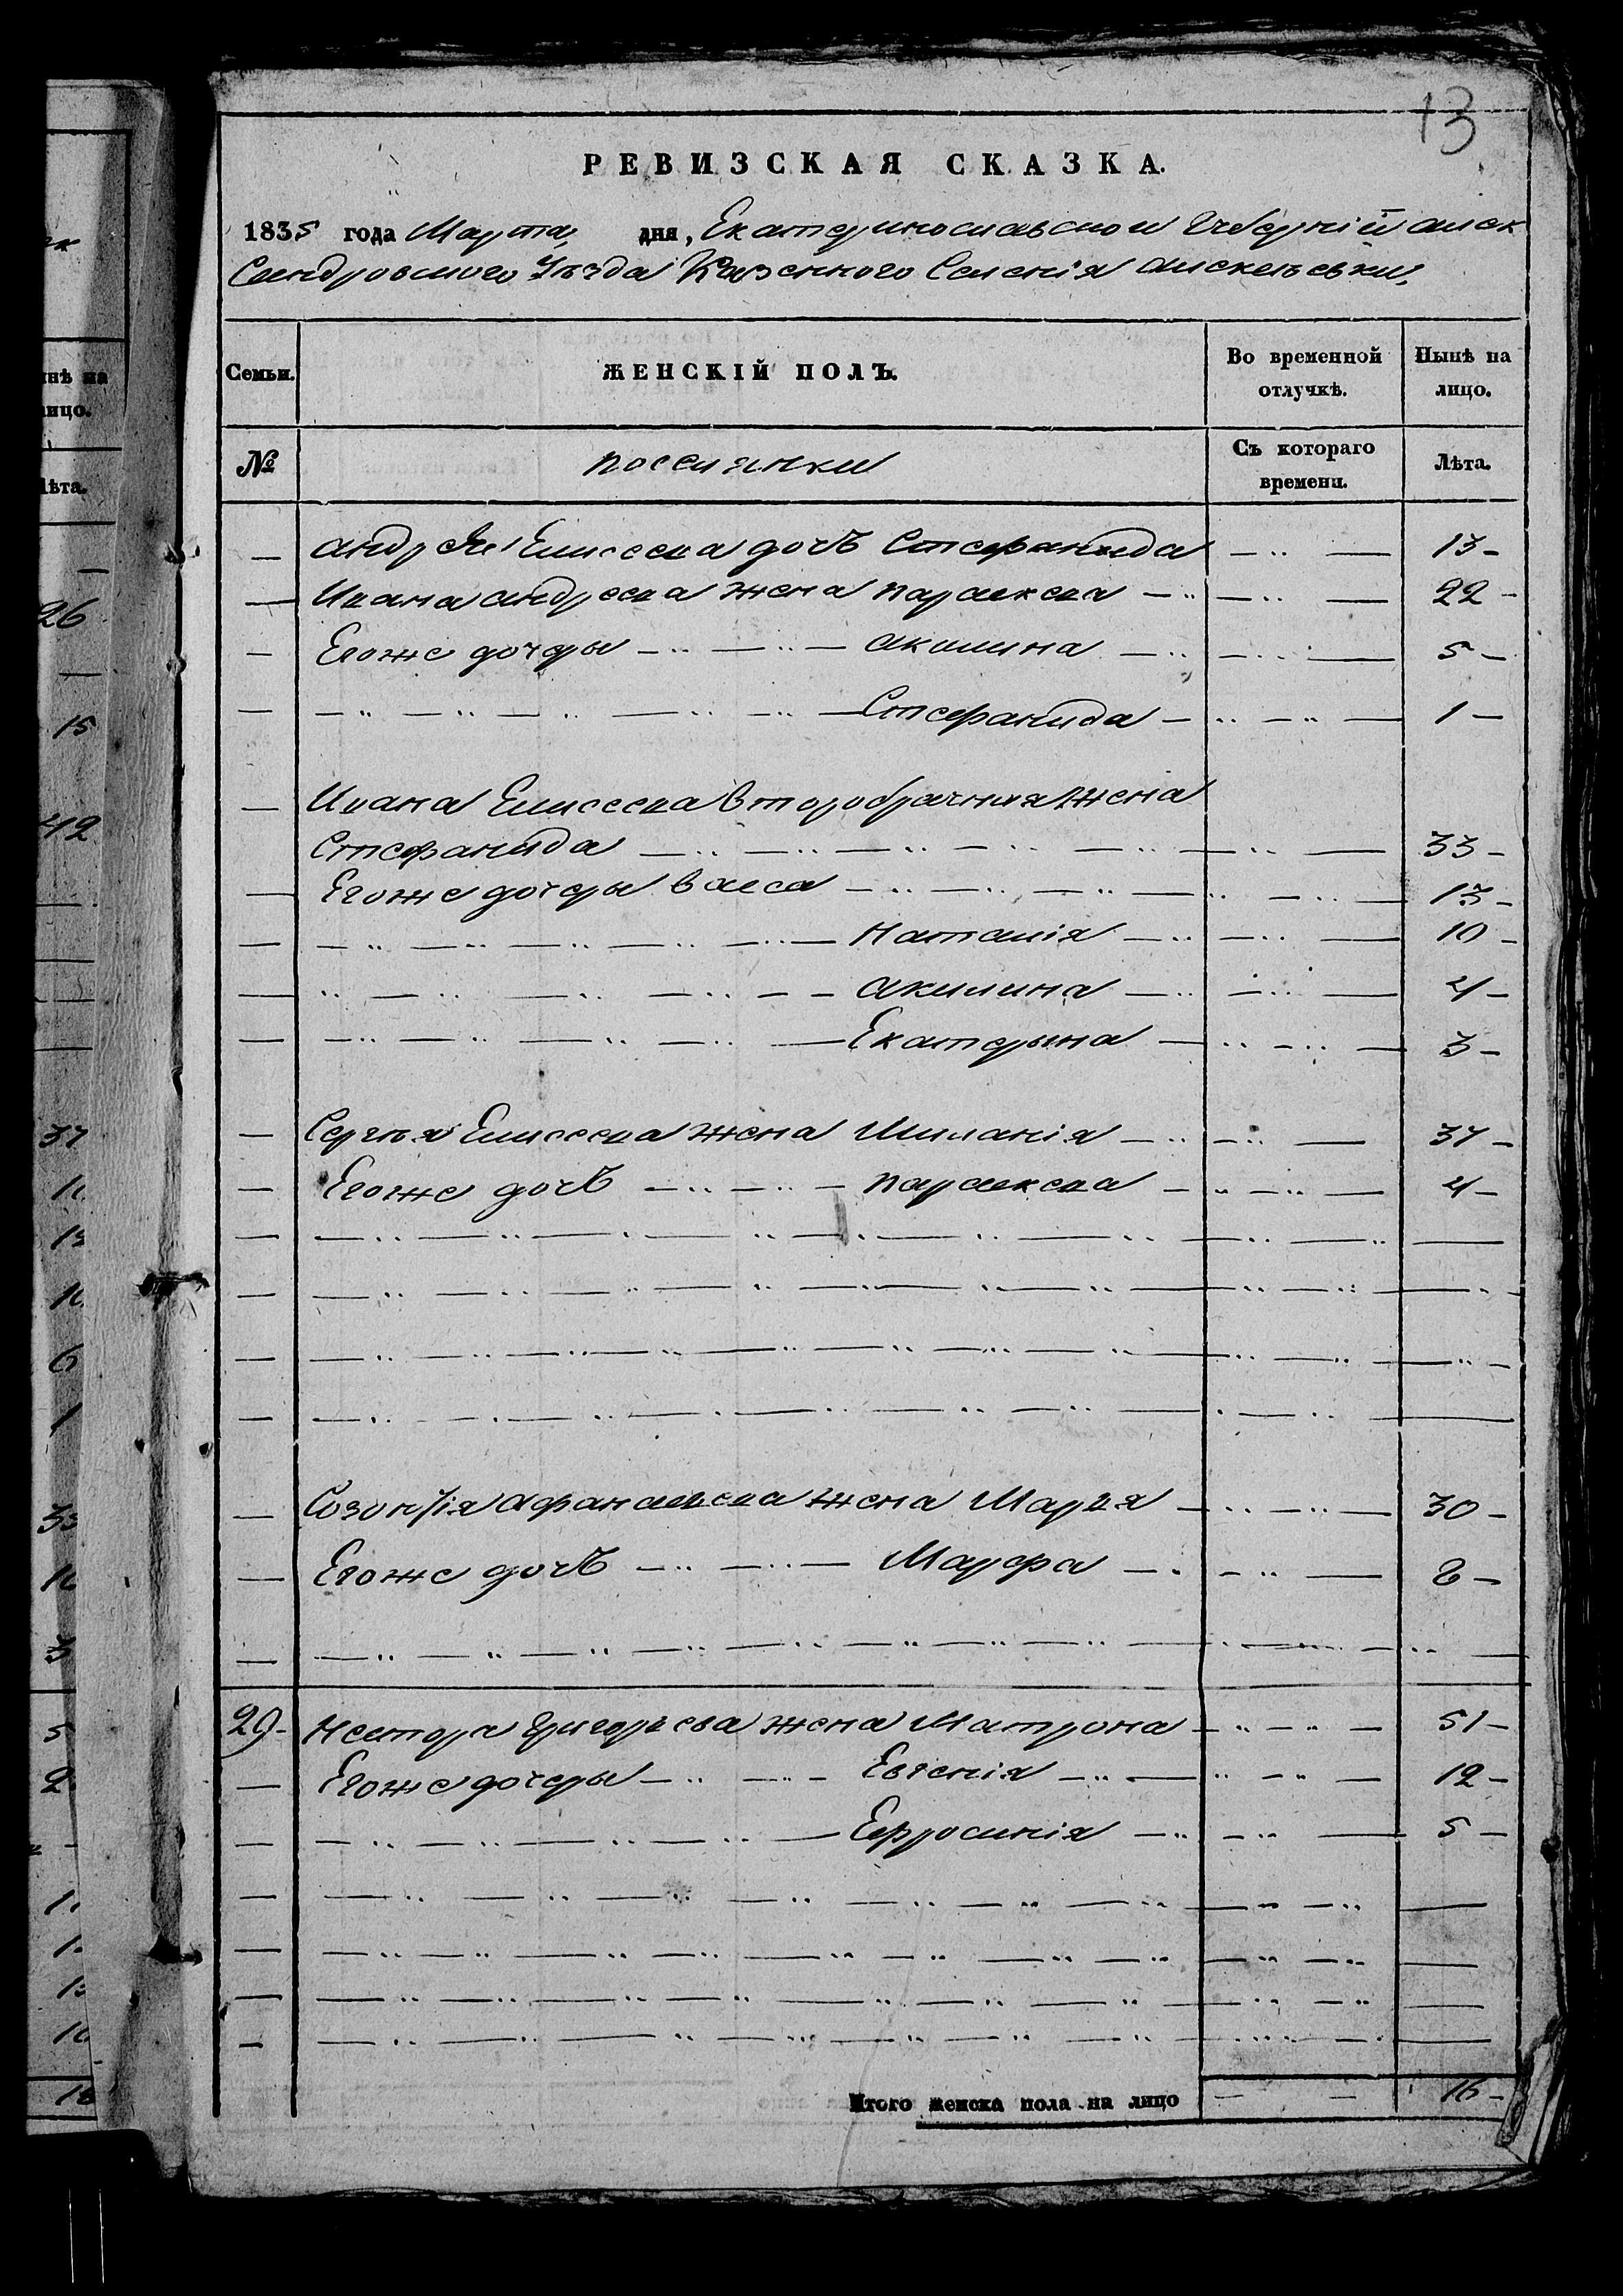 13
РЕВИЗСКАЯ СКАЗКА.
1835 года Марта, дня, Екатериношлавской Губерніи Алек
Сандровского Уѣзда Казенного Селенія Алексѣевки,
Семьи. ЖЕНСКІЙ ПОЛЪ. Во временной отлучкѣ. Нынѣ на лицо.
№ поселянки Съ котораго времени. Лѣта.
— Андрея Елисеева дочь Стефанида — 13 —
— Ивана Андреева жена параскева — 22 —
— Егоже дочеры — Акилина — 5 —
— Стефанида — 1 —
— Ивана Елисеева второбрачная жена
Стефанида — 33 —
— Егоже дочеры Васса — 13 —
— Наталія — 10 —
— Акилина — 4 —
— Екатерына — 3 —
— Сергѣя Елисеева жена Миланія — 37 —
— Егоже дочь — параскева — 4 —
— Созонтія Афанасьева жена Марья — 30 —
— Егоже дочь — Марфа — 8 —
29 — Нестора Григорьева жена Матрона — 51 —
— Егоже дочеры — Евгенія — 12 —
— Ефросинія — 5 —
Итого женска пола на лицо — — 16 —
нѣ на
ицо.
ѣта.
26
15
42
37
6
1
5
2